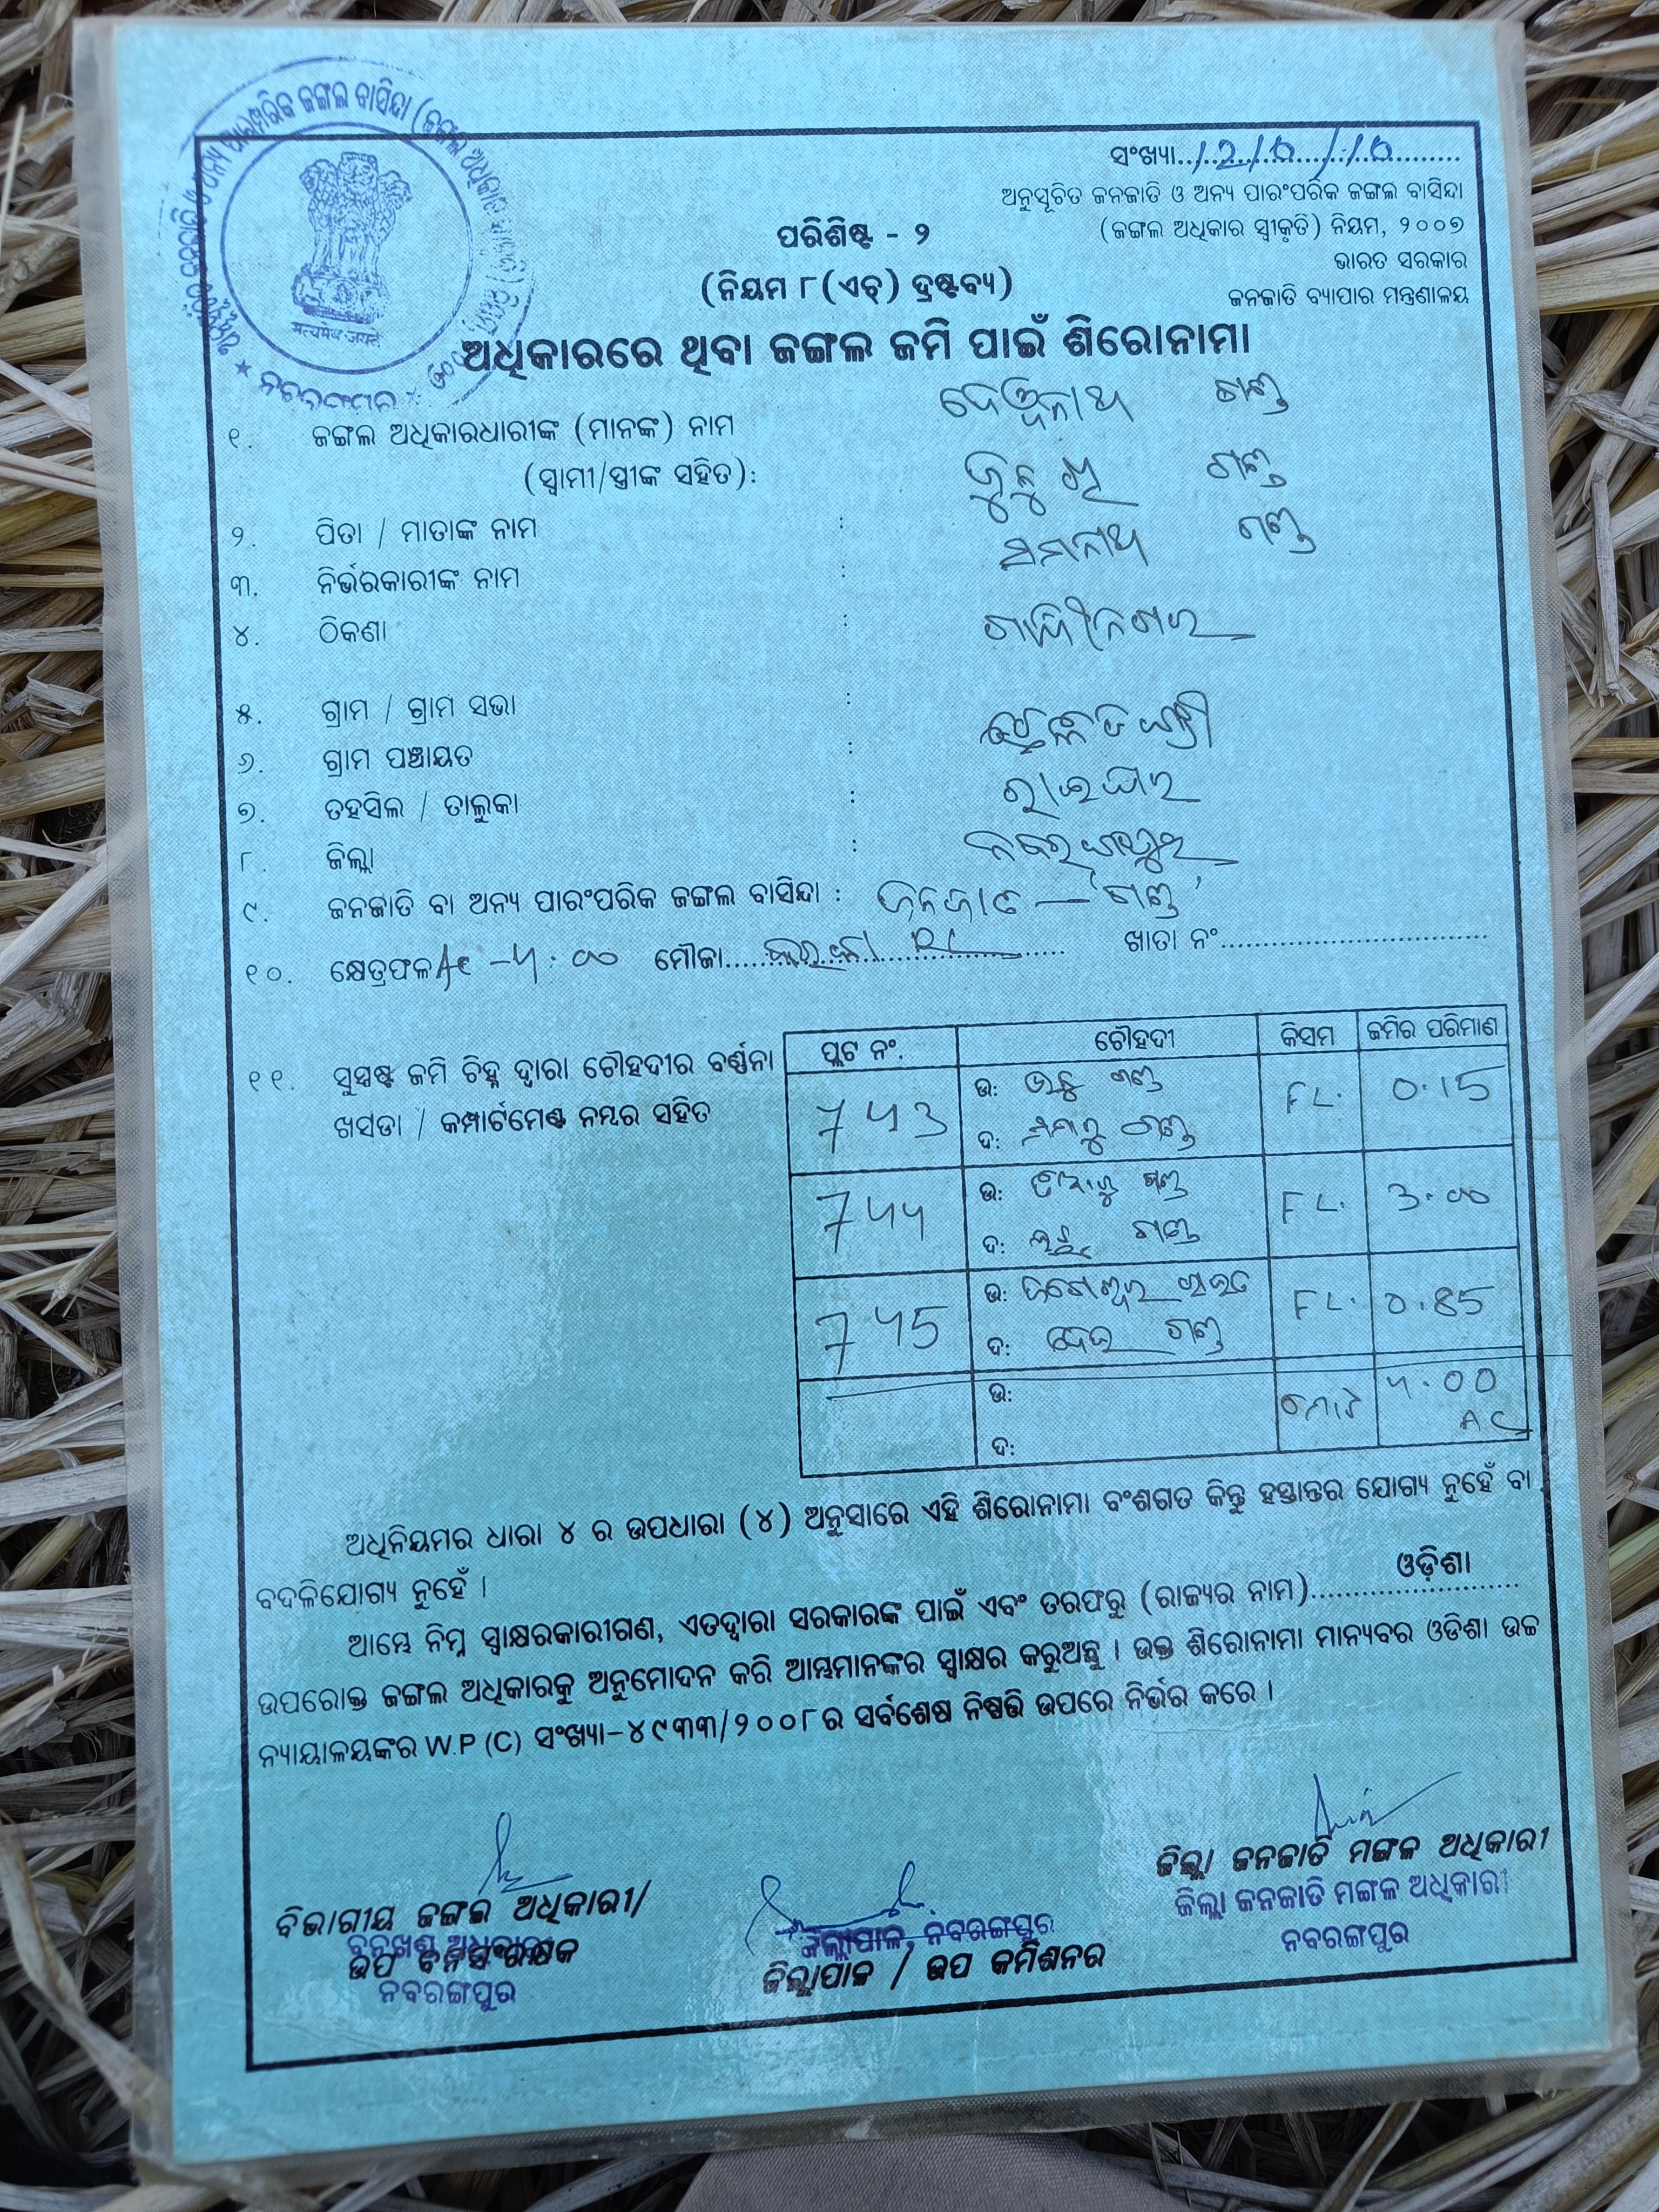 ସଂଖ୍ୟା
ଅନୁସୂଚିତ ଜନଜାତି ଓ ଅନ୍ୟ ପାରଂପରିକ ଜଙ୍ଗଲ ବାସିନ୍ଦା
(ଜଙ୍ଗଲ ଅଧିକାର ସ୍ୱୀକୃତି) ନିୟମ, ୨୦୦୭
ଭାରତ ସରକାର
ଜନଜାତି ବ୍ୟାପାର ମନ୍ତ୍ରଣାଳୟ
ପରିଶିଷ୍ଟ - ୨
(ନିୟମ ୮(ଏଚ୍) ଦ୍ରଷ୍ଟବ୍ୟ)
सत्यमेव जयते
ଅଧିକାରରେ ଥିବା ଜଙ୍ଗଲ ଜମି ପାଇଁ ଶିରୋନାମା
୧. ଜଙ୍ଗଲ ଅଧିକାରଧାରୀଙ୍କ (ମାନଙ୍କ) ନାମ ଗଣ୍ଡ
(ସ୍ୱାମୀ/ସ୍ତ୍ରୀଙ୍କ ସହିତ): ଗଣ୍ଡ
୨. ପିତା / ମାତାଙ୍କ ନାମ : ଗଣ୍ଡ
୩. ନିର୍ଭରକାରୀଙ୍କ ନାମ :
୪. ଠିକଣା :
୫. ଗ୍ରାମ / ଗ୍ରାମ ସଭା :
୬. ଗ୍ରାମ ପଞ୍ଚାୟତ :
୭. ତହସିଲ / ତାଲୁକା : ରାଇଘର
୮. ଜିଲ୍ଲା : ନବରଙ୍ଗପୁର
୯. ଜନଜାତି ବା ଅନ୍ୟ ପାରଂପରିକ ଜଙ୍ଗଲ ବାସିନ୍ଦା : ଜନଜାତି — 'ଗଣ୍ଡ'
୧୦. କ୍ଷେତ୍ରଫଳ Ac - 4.00 ମୌଜା ଖାତା ନଂ
୧୧. ସୁସ୍ପଷ୍ଟ ଜମି ଚିହ୍ନ ଦ୍ୱାରା ଚୌହଦୀର ବର୍ଣ୍ଣନା
ଖସଡା / କମ୍ପାର୍ଟମେଣ୍ଟ ନମ୍ବର ସହିତ
ପ୍ଲଟ ନଂ. ଚୌହଦୀ କିସମ ଜମିର ପରିମାଣ
743 ଉ: ଗଣ୍ଡ FL. 0.15
ଦ: ଗଣ୍ଡ
744 ଉ: ଗଣ୍ଡ FL. 3.00
ଦ: ଗଣ୍ଡ
745 ଉ: FL. 0.85
ଦ: ଗଣ୍ଡ
ଉ: ମୋଟ 4.00
ଦ: AC
ଅଧିନିୟମର ଧାରା ୪ ର ଉପଧାରା (୪) ଅନୁସାରେ ଏହି ଶିରୋନାମା ବଂଶଗତ କିନ୍ତୁ ହସ୍ତାନ୍ତର ଯୋଗ୍ୟ ନୁହେଁ ବା
ବଦଳିଯୋଗ୍ୟ ନୁହେଁ ।
ଆମ୍ଭେ ନିମ୍ନ ସ୍ୱାକ୍ଷରକାରୀଗଣ, ଏତଦ୍ଦ୍ୱାରା ସରକାରଙ୍କ ପାଇଁ ଏବଂ ତରଫରୁ (ରାଜ୍ୟର ନାମ) ଓଡ଼ିଶା
ଉପରୋକ୍ତ ଜଙ୍ଗଲ ଅଧିକାରକୁ ଅନୁମୋଦନ କରି ଆମ୍ଭମାନଙ୍କର ସ୍ୱାକ୍ଷର କରୁଅଛୁ । ଉକ୍ତ ଶିରୋନାମା ମାନ୍ୟବର ଓଡିଶା ଉଚ୍ଚ
ନ୍ୟାୟାଳୟଙ୍କର W.P (C) ସଂଖ୍ୟା-୪୯୩୩/୨୦୦୮ର ସର୍ବଶେଷ ନିଷ୍ପତ୍ତି ଉପରେ ନିର୍ଭର କରେ ।
ବିଭାଗୀୟ ଜଙ୍ଗଲ ଅଧିକାରୀ/
ଉପ ବନସଂରକ୍ଷକ
ନବରଙ୍ଗପୁର
ଜିଲ୍ଲାପାଳ, ନବରଙ୍ଗପୁର
ଜିଲ୍ଲାପାଳ / ଉପ କମିଶନର
ଜିଲ୍ଲା ଜନଜାତି ମଙ୍ଗଳ ଅଧିକାରୀ
ଜିଲ୍ଲା ଜନଜାତି ମଙ୍ଗଳ ଅଧିକାରୀ
ନବରଙ୍ଗପୁର